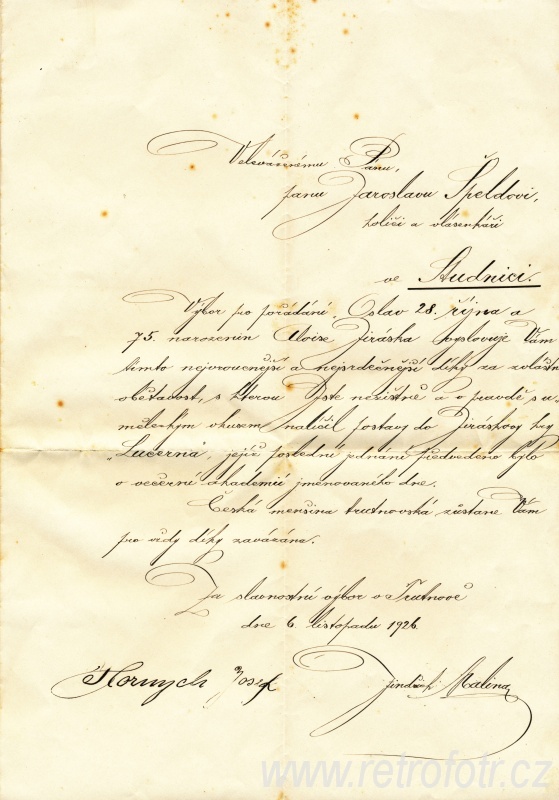 Veleváženému Pánu,
panu Jaroslavu Špeldovi,
holiči a vlásenkáři
ve Studnici.
Výbor pro pořádání „Oslav 28. října a
75. narozenin Aloise Jiráska vyslovuje Vám
tímto nejvroucnější a nejsrdečnější díky za zvláštní
obětavost, s kterou Jste nezištně a v pravdě s u-
měleckým vkusem nalíčil postavy do Jiráskovy hry
„Lucerna“, jejíž poslední jednání předvedeno bylo
o večerní akademii jmenovaného dne.
Česká menšina trutnovská zůstane Vám
pro vždy díky zavázána.
Za slavnostní výbor v Trutnově
dne 6. listopadu 1926.
Hornych Josef Jindřich Malina
www.retrofotr.cz